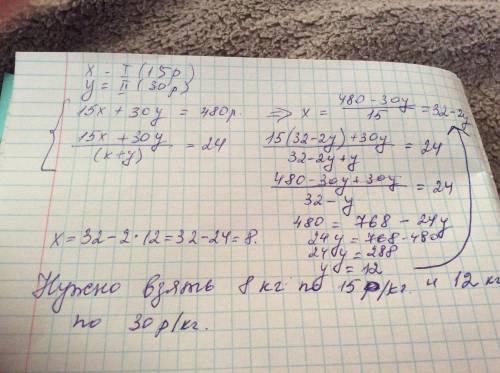 x - I (15р.)
y = II (30р.)
15x + 30y = 480р. => x = (480 - 30y)/15 = 32 - 2y
(15x + 30y)/(x+y) = 24
(15(32-2y) + 30y)/(32-2y+y) = 24
(480 - 30y + 30y)/(32 - y) = 24
480 = 768 - 24y
24y = 768 - 480
24y = 288
y = 12
x = 32 - 2·12 = 32 - 24 = 8.
Нужно взять 8 кг по 15р/кг. и 12 кг
по 30р/кг.